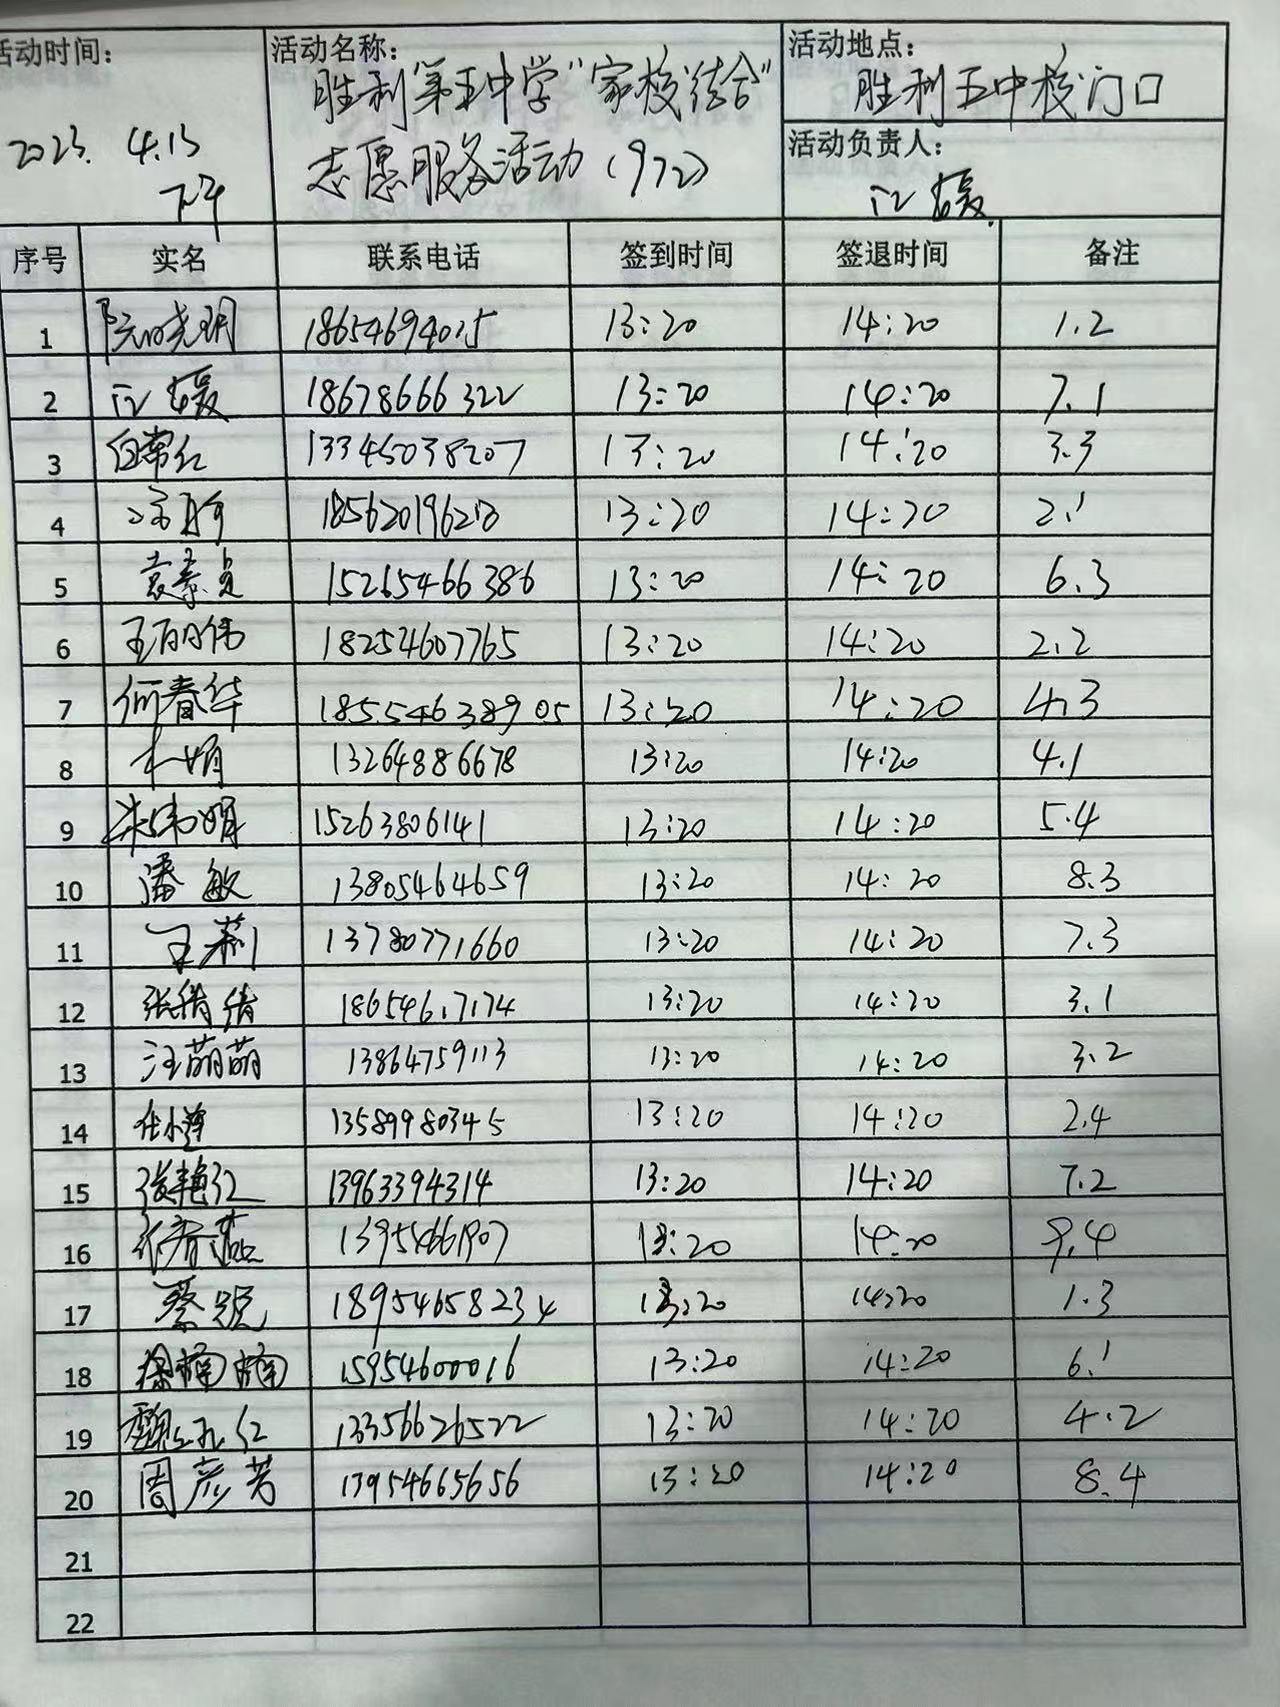 活动时间：
2023. 4.13
下午
活动名称：
胜利第五中学"家校结合"
志愿服务活动（972）
活动地点：
胜利五中校门口
活动负责人：
江媛
序号 实名 联系电话 签到时间 签退时间 备注
1 阮晓玥 18654694015 13:20 14:20 1.2
2 江媛 18678666322 13:20 14:20 7.1
3 白常红 13345038207 13:20 14:20 3.3
4 18562019628 13:20 14:20 2.1
5 袁素贞 15265466386 13:20 14:20 6.3
6 王丽伟 18254607765 13:20 14:20 2.2
7 何春华 18554638905 13:20 14:20 4.3
8 13264886678 13:20 14:20 4.1
9 15263806141 13:20 14:20 5.4
10 潘敏 13805464659 13:20 14:20 8.3
11 王莉 13780771660 13:20 14:20 7.3
12 张倩倩 18654617174 13:20 14:20 3.1
13 汪萌萌 13864759113 13:20 14:20 3.2
14 任小莲 13589980345 13:20 14:20 2.4
15 张艳红 13963394314 13:20 14:20 7.2
16 13:20 14:20 9.4
17 18954658234 13:20 14:20 1.3
18 徐楠楠 15954600016 13:20 14:20 6.1
19 13356626522 13:20 14:20 4.2
20 周彦芳 13954665656 13:20 14:20 8.4
21
22